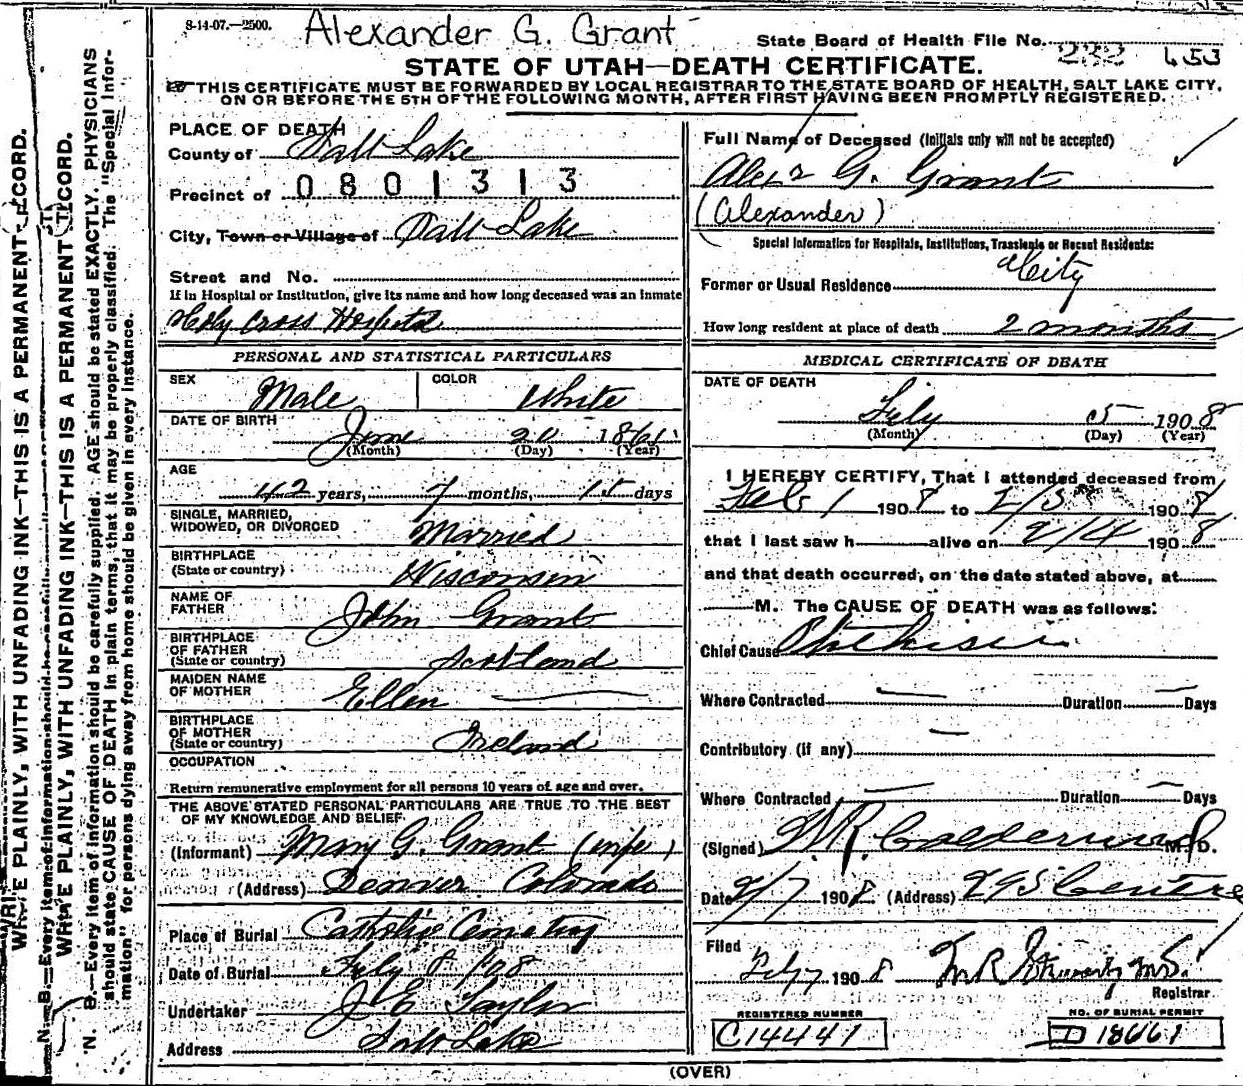 8-14-07.—2500.
Alexander G. Grant
State Board of Health File No. 232 453
STATE OF UTAH—DEATH CERTIFICATE.
THIS CERTIFICATE MUST BE FORWARDED BY LOCAL REGISTRAR TO THE STATE BOARD OF HEALTH, SALT LAKE CITY,
ON OR BEFORE THE 5TH OF THE FOLLOWING MONTH, AFTER FIRST HAVING BEEN PROMPTLY REGISTERED.
PLACE OF DEATH
County of Salt Lake
Precinct of 0801313
City, Town or Village of Salt Lake
Street and No.
If in Hospital or Institution, give its name and how long deceased was an inmate
Holy Cross Hospital
PERSONAL AND STATISTICAL PARTICULARS
SEX Male COLOR White
DATE OF BIRTH
June 20 1865
(Month) (Day) (Year)
AGE
42 years, 7 months, 15 days
SINGLE, MARRIED,
WIDOWED, OR DIVORCED Married
BIRTHPLACE
(State or country) Wisconsin
NAME OF
FATHER John Grant
BIRTHPLACE
OF FATHER
(State or country) Scotland
MAIDEN NAME
OF MOTHER Ellen —
BIRTHPLACE
OF MOTHER
(State or country) Ireland
OCCUPATION
Return remunerative employment for all persons 10 years of age and over.
THE ABOVE STATED PERSONAL PARTICULARS ARE TRUE TO THE BEST
OF MY KNOWLEDGE AND BELIEF
(Informant) Mary G. Grant (wife)
(Address) Denver Colorado
Place of Burial Catholic Cemetery
Date of Burial Feby 8 1908
Undertaker J E Taylor
Address Salt Lake
Full Name of Deceased (Initials only will not be accepted)
Alex'r G. Grant
(Alexander)
Special Information for Hospitals, Institutions, Transients or Recent Residents:
Former or Usual Residence City
How long resident at place of death 2 months
MEDICAL CERTIFICATE OF DEATH
DATE OF DEATH
Feby 5 1908
(Month) (Day) (Year)
I HEREBY CERTIFY, That I attended deceased from
Feb 1 1908 to 2/5 1908
that I last saw h alive on 2/4 1908
and that death occurred, on the date stated above, at
M. The CAUSE OF DEATH was as follows:
Chief Cause Phthisis
Where Contracted — Duration — Days
Contributory (if any) —
Where Contracted — Duration — Days
(Signed) W.R. Calderwood M.D.
Date 2/7 1908 (Address)
Filed
Feb 7 1908 M.D.
Registrar
REGISTERED NUMBER
C14441
NO. OF BURIAL PERMIT
D 18661
(OVER)
WRITE PLAINLY, WITH UNFADING INK—THIS IS A PERMANENT RECORD.
N. B.—Every item of information should be carefully
WRITE PLAINLY, WITH UNFADING INK—THIS IS A PERMANENT RECORD.
N. B.—Every item of information should be carefully supplied. AGE should be stated EXACTLY. PHYSICIANS
should state CAUSE OF DEATH in plain terms, that it may be properly classified. The "Special Infor-
mation" for persons dying away from home should be given in every instance.